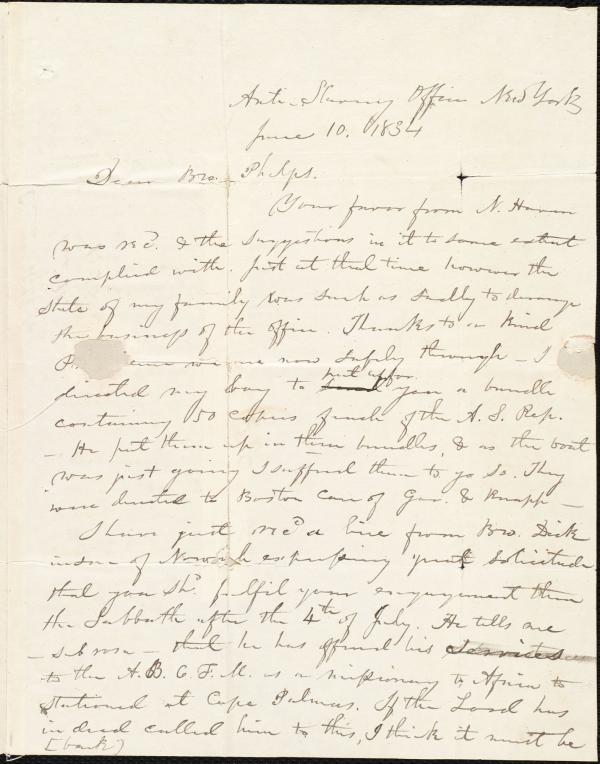 Anti-Slavery Office New York
June 10. 1834
Dear Bro. Phelps.
Your favor from N. Haven
was rec'd. & the suggestions in it to some extent
complied with. Just at that time however the
state of my family was such as sadly to derange
the business of the office. Thanks to a kind
we are now safely through - I
directed my boy to put up for you a bundle
containing 50 copies of each of the A. S. Rep.
- He put them up in three bundles, & as the boat
was just going I suffered them to go so. They
were directed to Boston Care of Gar. & Knapp -
I have just rec'd a line from Bro. Dick
inson of Norwich expressing great solicitude
that you shd. fulfil your engagement there
the Sabbath after the 4th of July. He tells me
- sub rosa - that he has offered his services
to the A. B. C. F. M. as a missionary to Africa to
stationed at Cape Palmas. If the Lord has
indeed called him to this, I think it must be
[back)